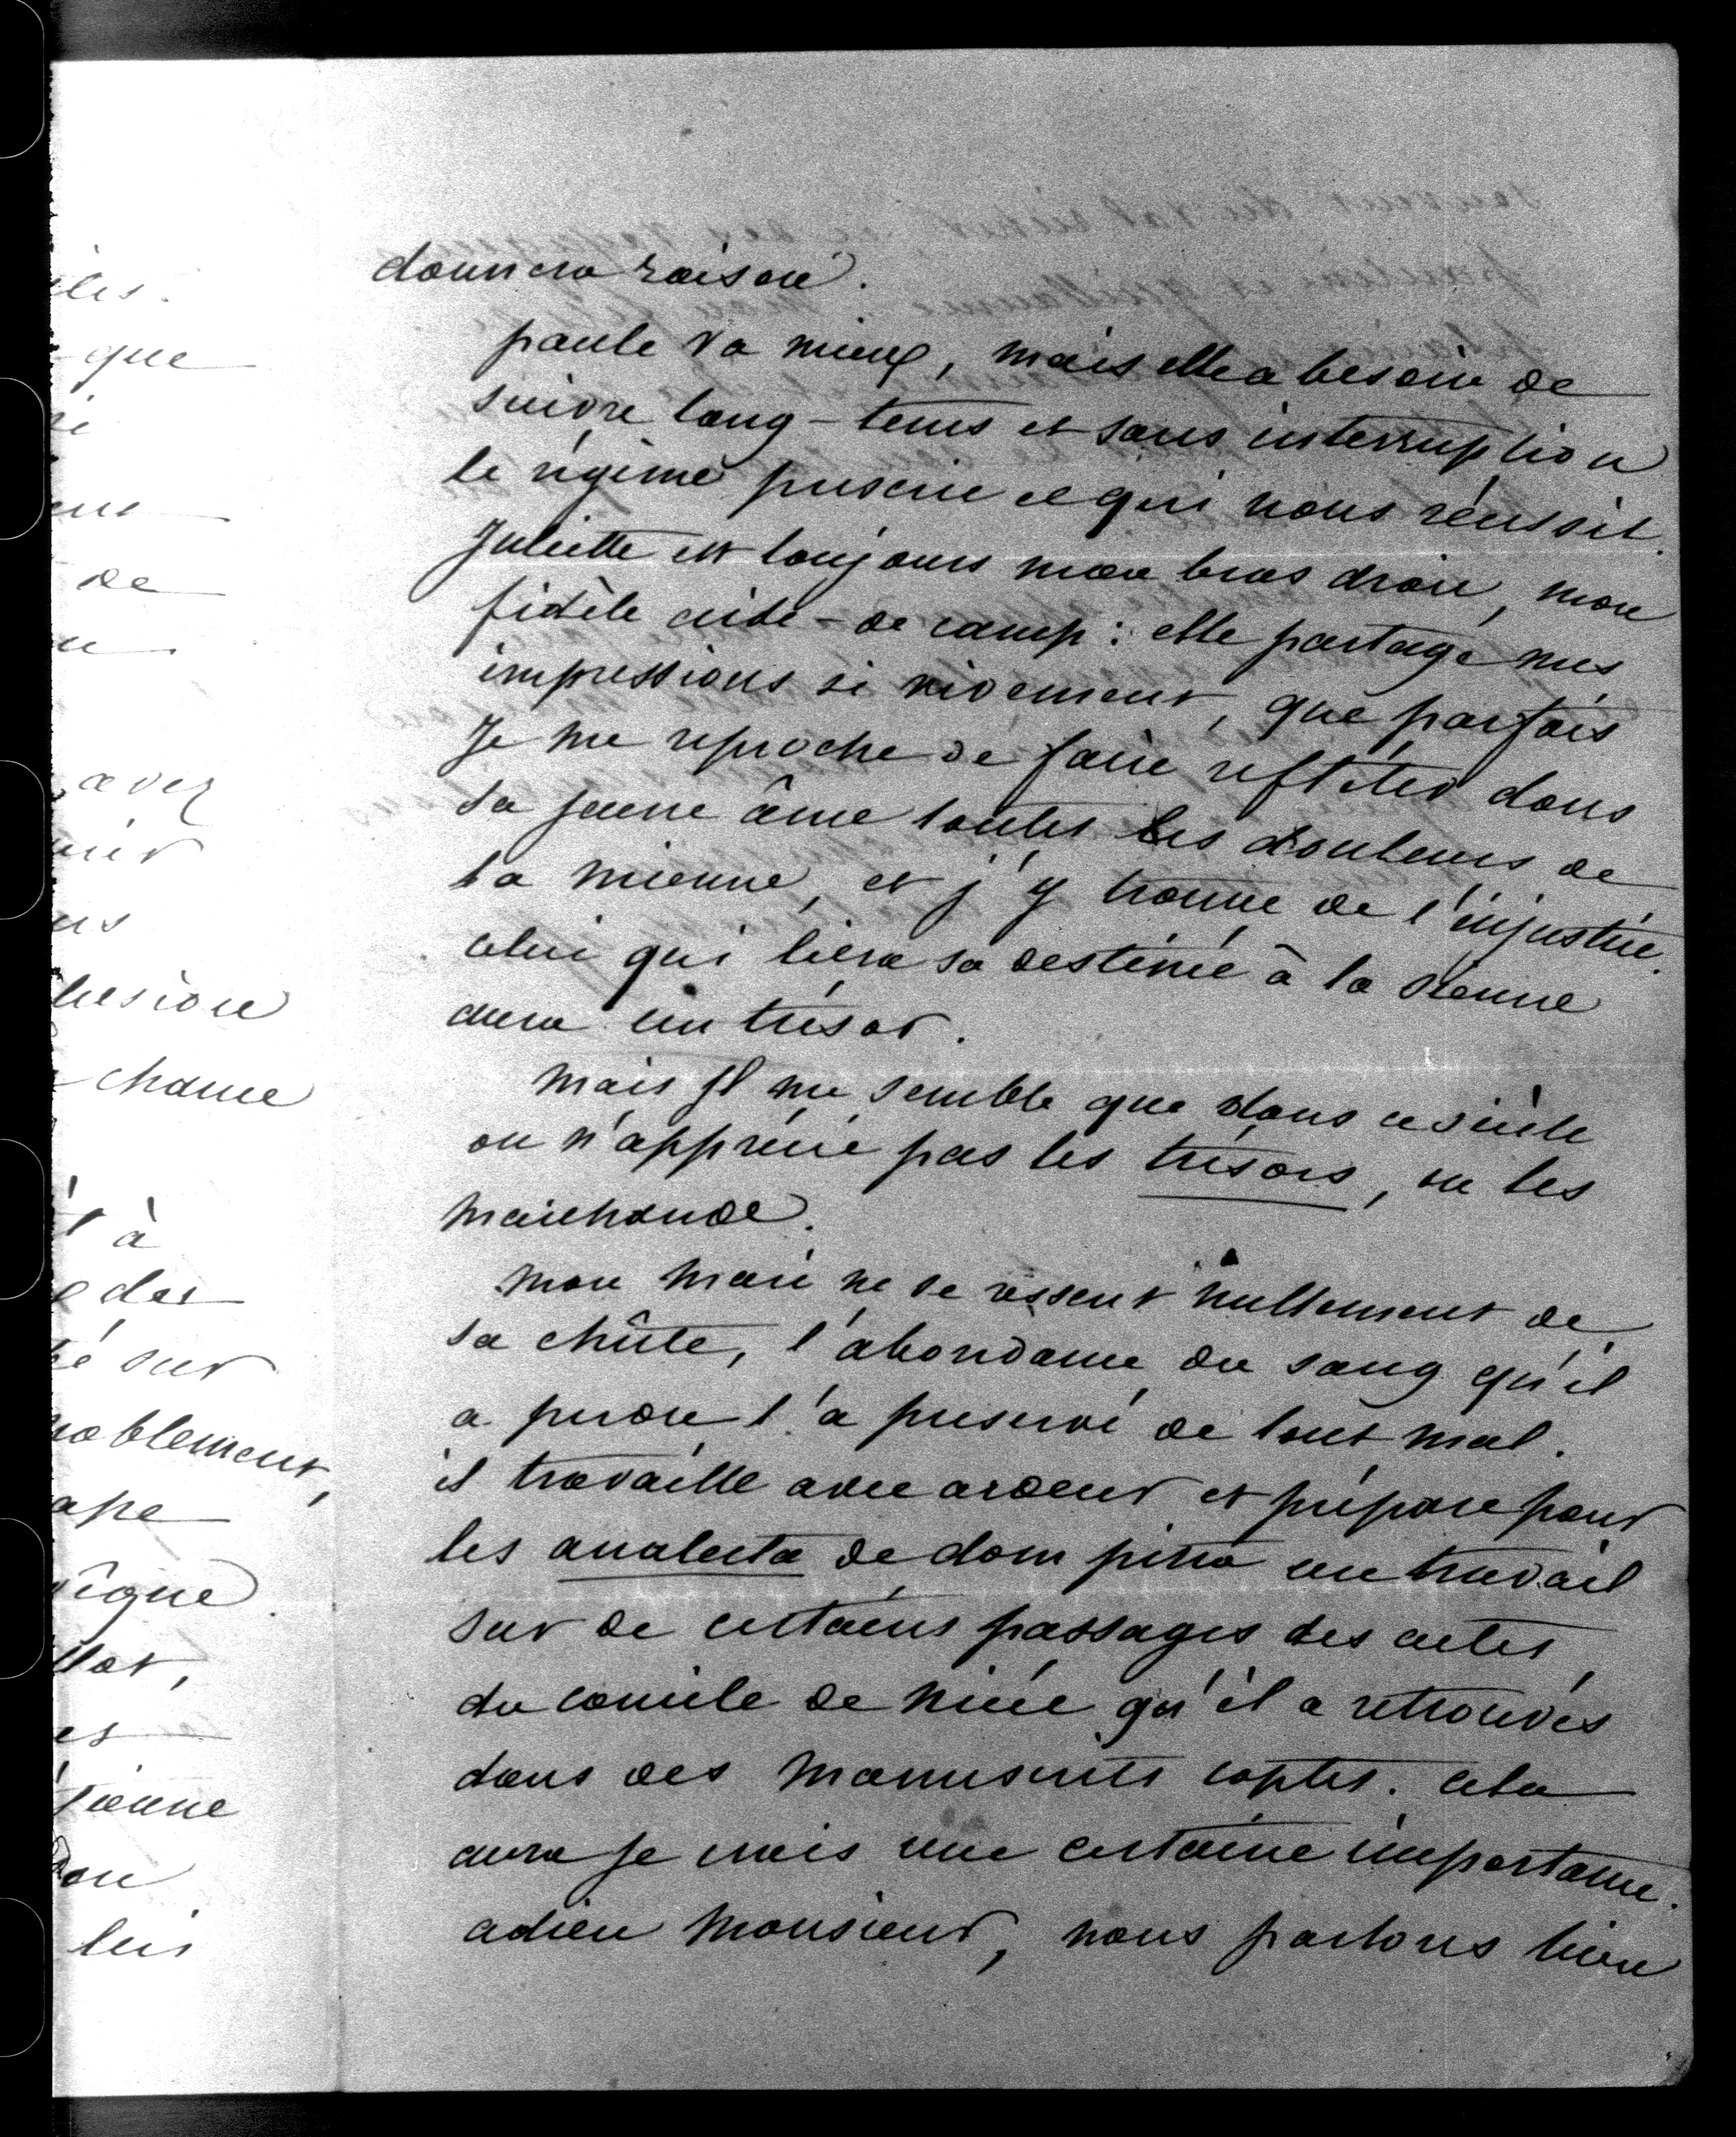 donnera raison.
paule va mieux, mais elle a besoin de
suivre long-tems et sans interruption
le régime prescrit et qui nous réussit.
Juliette est toujours mon bras droit, mon
fidèle aide-de camp : elle partage mes
impressions si vivement, que parfois
Je me reproche de faire refléter dans
sa jeune âme toutes les douleurs de
la mienne, et j'y trouve de l'injustice.
celui qui liera sa destinée à la sienne
aura un trésor.
mais Il me semble que dans ce siècle
on n'apprécie pas les trésors, on les
marchande.
mon mari ne se ressent nullement de
sa chûte, l'abondance du sang qu'il
a perdu l'a preservé de tout mal.
il travaille avec ardeur et prépare pour
les analecta de dom pitra un travail
sur de certains passages des actes
du concile de nicée qu'il a retrouvés
dans des manuscrits coptes. cela
aura je crois une certaine importance.
adieu Monsieur, nous parlons bien
iles.
que
de
avez
lusion
chance
à
des
sur
noblement,
ape
et
sienne
lui